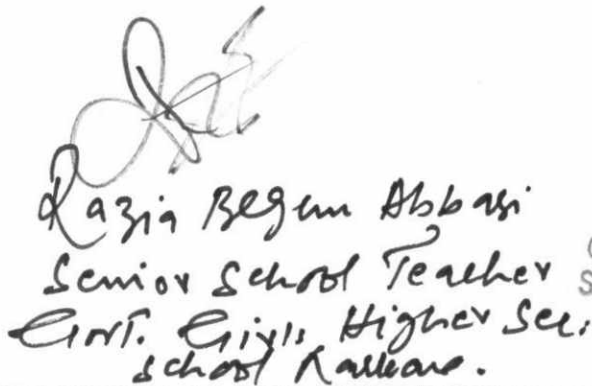 Razia Begum Abbasi
Senior School Teacher
Govt. Girls Higher Sec:
School